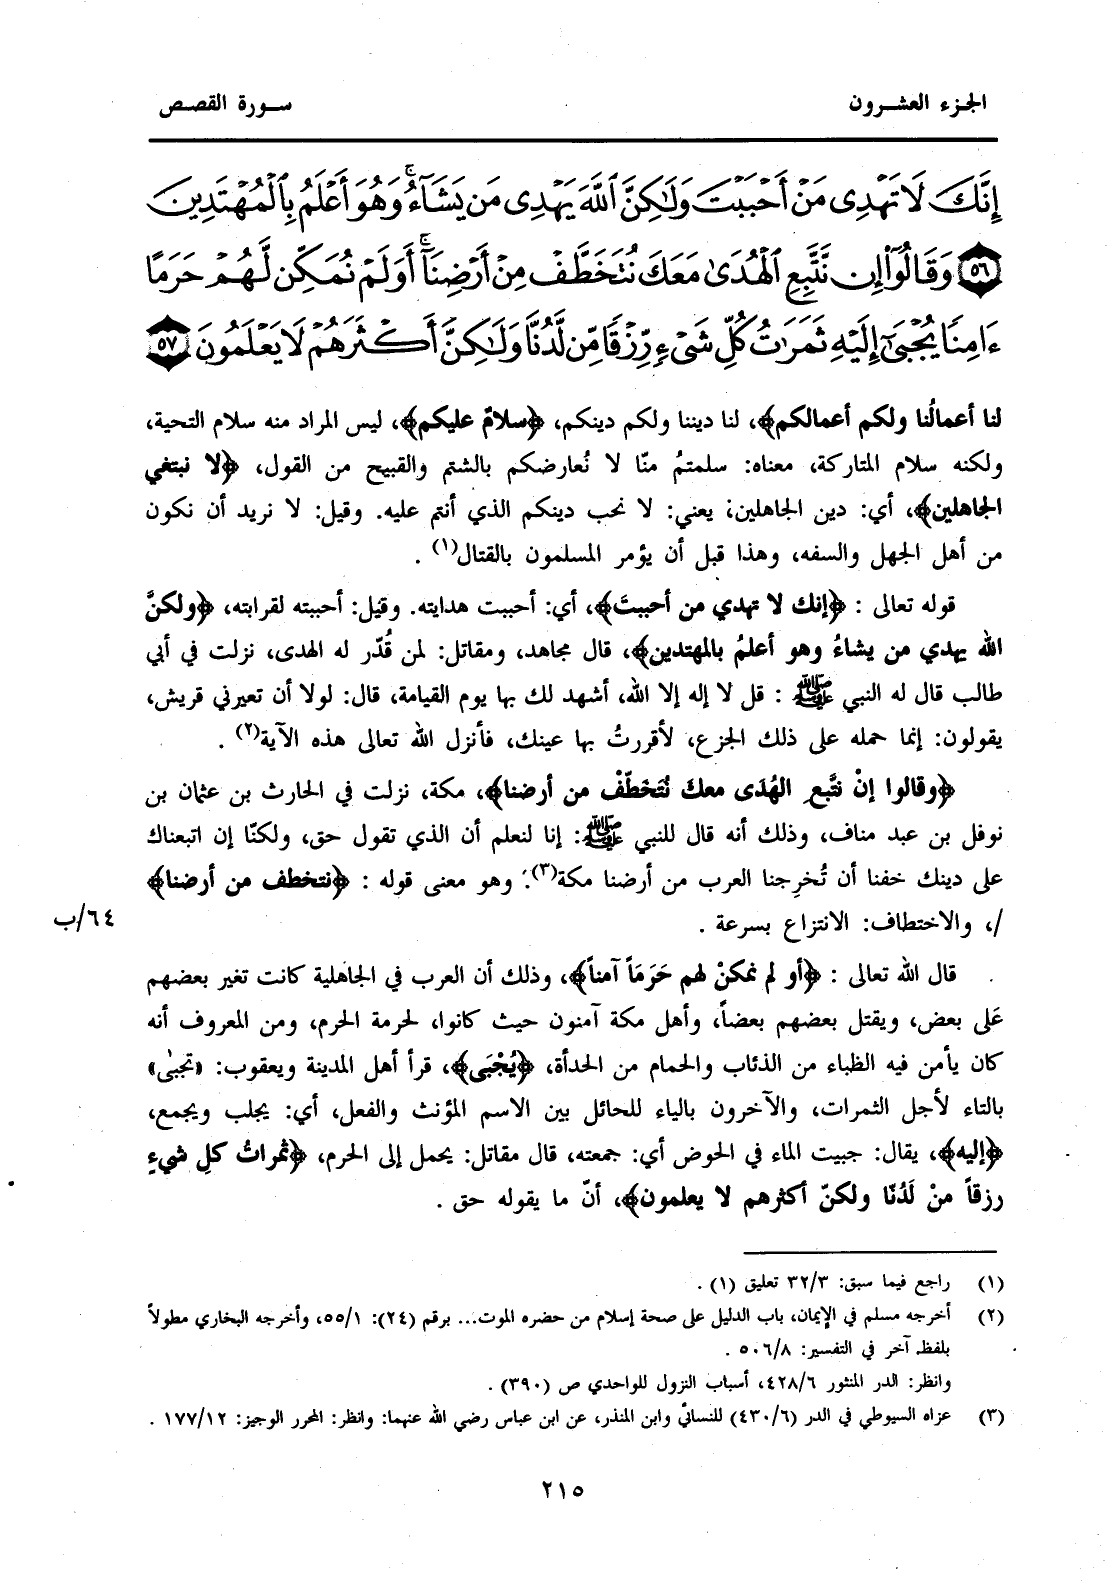 الجزء العشرون
سورة القصص
إِنَّكَ لَا تَهْدِى مَنْ أَحْبَبْتَ وَلَٰكِنَّ ٱللَّهَ يَهْدِى مَن يَشَآءُ ۚ وَهُوَ أَعْلَمُ بِٱلْمُهْتَدِينَ
٥٦ وَقَالُوٓا۟ إِن نَّتَّبِعِ ٱلْهُدَىٰ مَعَكَ نُتَخَطَّفْ مِنْ أَرْضِنَآ ۚ أَوَلَمْ نُمَكِّن لَّهُمْ حَرَمًا
ءَامِنًا يُجْبَىٰٓ إِلَيْهِ ثَمَرَٰتُ كُلِّ شَىْءٍ رِّزْقًا مِّن لَّدُنَّا وَلَٰكِنَّ أَكْثَرَهُمْ لَا يَعْلَمُونَ ٥٧
لنا أعمالُنا ولكم أعمالكم﴾، لنا ديننا ولكم دينكم، ﴿سلامٌ عليكم﴾، ليس المراد منه سلام التحية،
ولكنه سلام المتاركة، معناه: سلمتمُ منّا لا نُعارضكم بالشتم والقبيح من القول، ﴿لا نبتغي
الجاهلين﴾، أي: دين الجاهلين؛ يعني: لا نحب دينكم الذي أنتم عليه. وقيل: لا نريد أن نكون
من أهل الجهل والسفه، وهذا قبل أن يؤمر المسلمون بالقتال(١) .
قوله تعالى : ﴿إنك لا تهدي من أحببتَ﴾، أي: أحببت هدايته. وقيل: أحببته لقرابته، ﴿ولكنَّ
الله يهدي من يشاءُ وهو أعلمُ بالمهتدين﴾، قال مجاهد، ومقاتل: لمن قُدّر له الهدى، نزلت في أبي
طالب قال له النبي ﷺ : قل لا إله إلا الله، أشهد لك بها يوم القيامة، قال: لولا أن تعيرني قريش،
يقولون: إنما حمله على ذلك الجزع، لأقررتُ بها عينك، فأنزل الله تعالى هذه الآية(٢) .
﴿وقالوا إنْ نتَّبع الهُدَى معكَ نُتَخَطّفْ من أرضنا﴾، مكة، نزلت في الحارث بن عثمان بن
نوفل بن عبد مناف، وذلك أنه قال للنبي ﷺ: إنا لنعلم أن الذي تقول حق، ولكنّا إن اتبعناك
على دينك خفنا أن تُخرِجنا العرب من أرضنا مكة(٣). وهو معنى قوله : ﴿نتخطف من أرضنا﴾
/، والاختطاف: الانتزاع بسرعة .
٦٤/ب
قال الله تعالى : ﴿أو لم نمكنْ لهم حَرَمَاً آمناً﴾، وذلك أن العرب في الجاهلية كانت تغير بعضهم
عَلى بعض، ويقتل بعضهم بعضاً، وأهل مكة آمنون حيث كانوا، لحرمة الحرم، ومن المعروف أنه
كان يأمن فيه الظباء من الذئاب والحمام من الحدأة، ﴿يُجْبَى﴾، قرأ أهل المدينة ويعقوب: «تجبىٰ»
بالتاء لأجل الثمرات، والآخرون بالياء للحائل بين الاسم المؤنث والفعل، أي: يجلب ويجمع،
﴿إليه﴾، يقال: جبيت الماء في الحوض أي: جمعته، قال مقاتل: يحمل إلى الحرم، ﴿ثمراتُ كلِ شيءٍ
رزقاً منْ لَدُنّا ولكنّ أكثرهم لا يعلمون﴾، أنّ ما يقوله حق .
(١) راجع فيما سبق: ٣٢/٣ تعليق (١) .
(٢) أخرجه مسلم في الإيمان، باب الدليل على صحة إسلام من حضره الموت... برقم (٢٤): ٥٥/١، وأخرجه البخاري مطولاً
بلفظ آخر في التفسير: ٥٠٦/٨ .
وانظر: الدر المنثور ٤٢٨/٦، أسباب النزول للواحدي ص (٣٩٠) .
(٣) عزاه السيوطي في الدر (٤٣٠/٦) للنسائي وابن المنذر، عن ابن عباس رضي الله عنهما: وانظر: المحرر الوجيز: ١٧٧/١٢ .
٢١٥